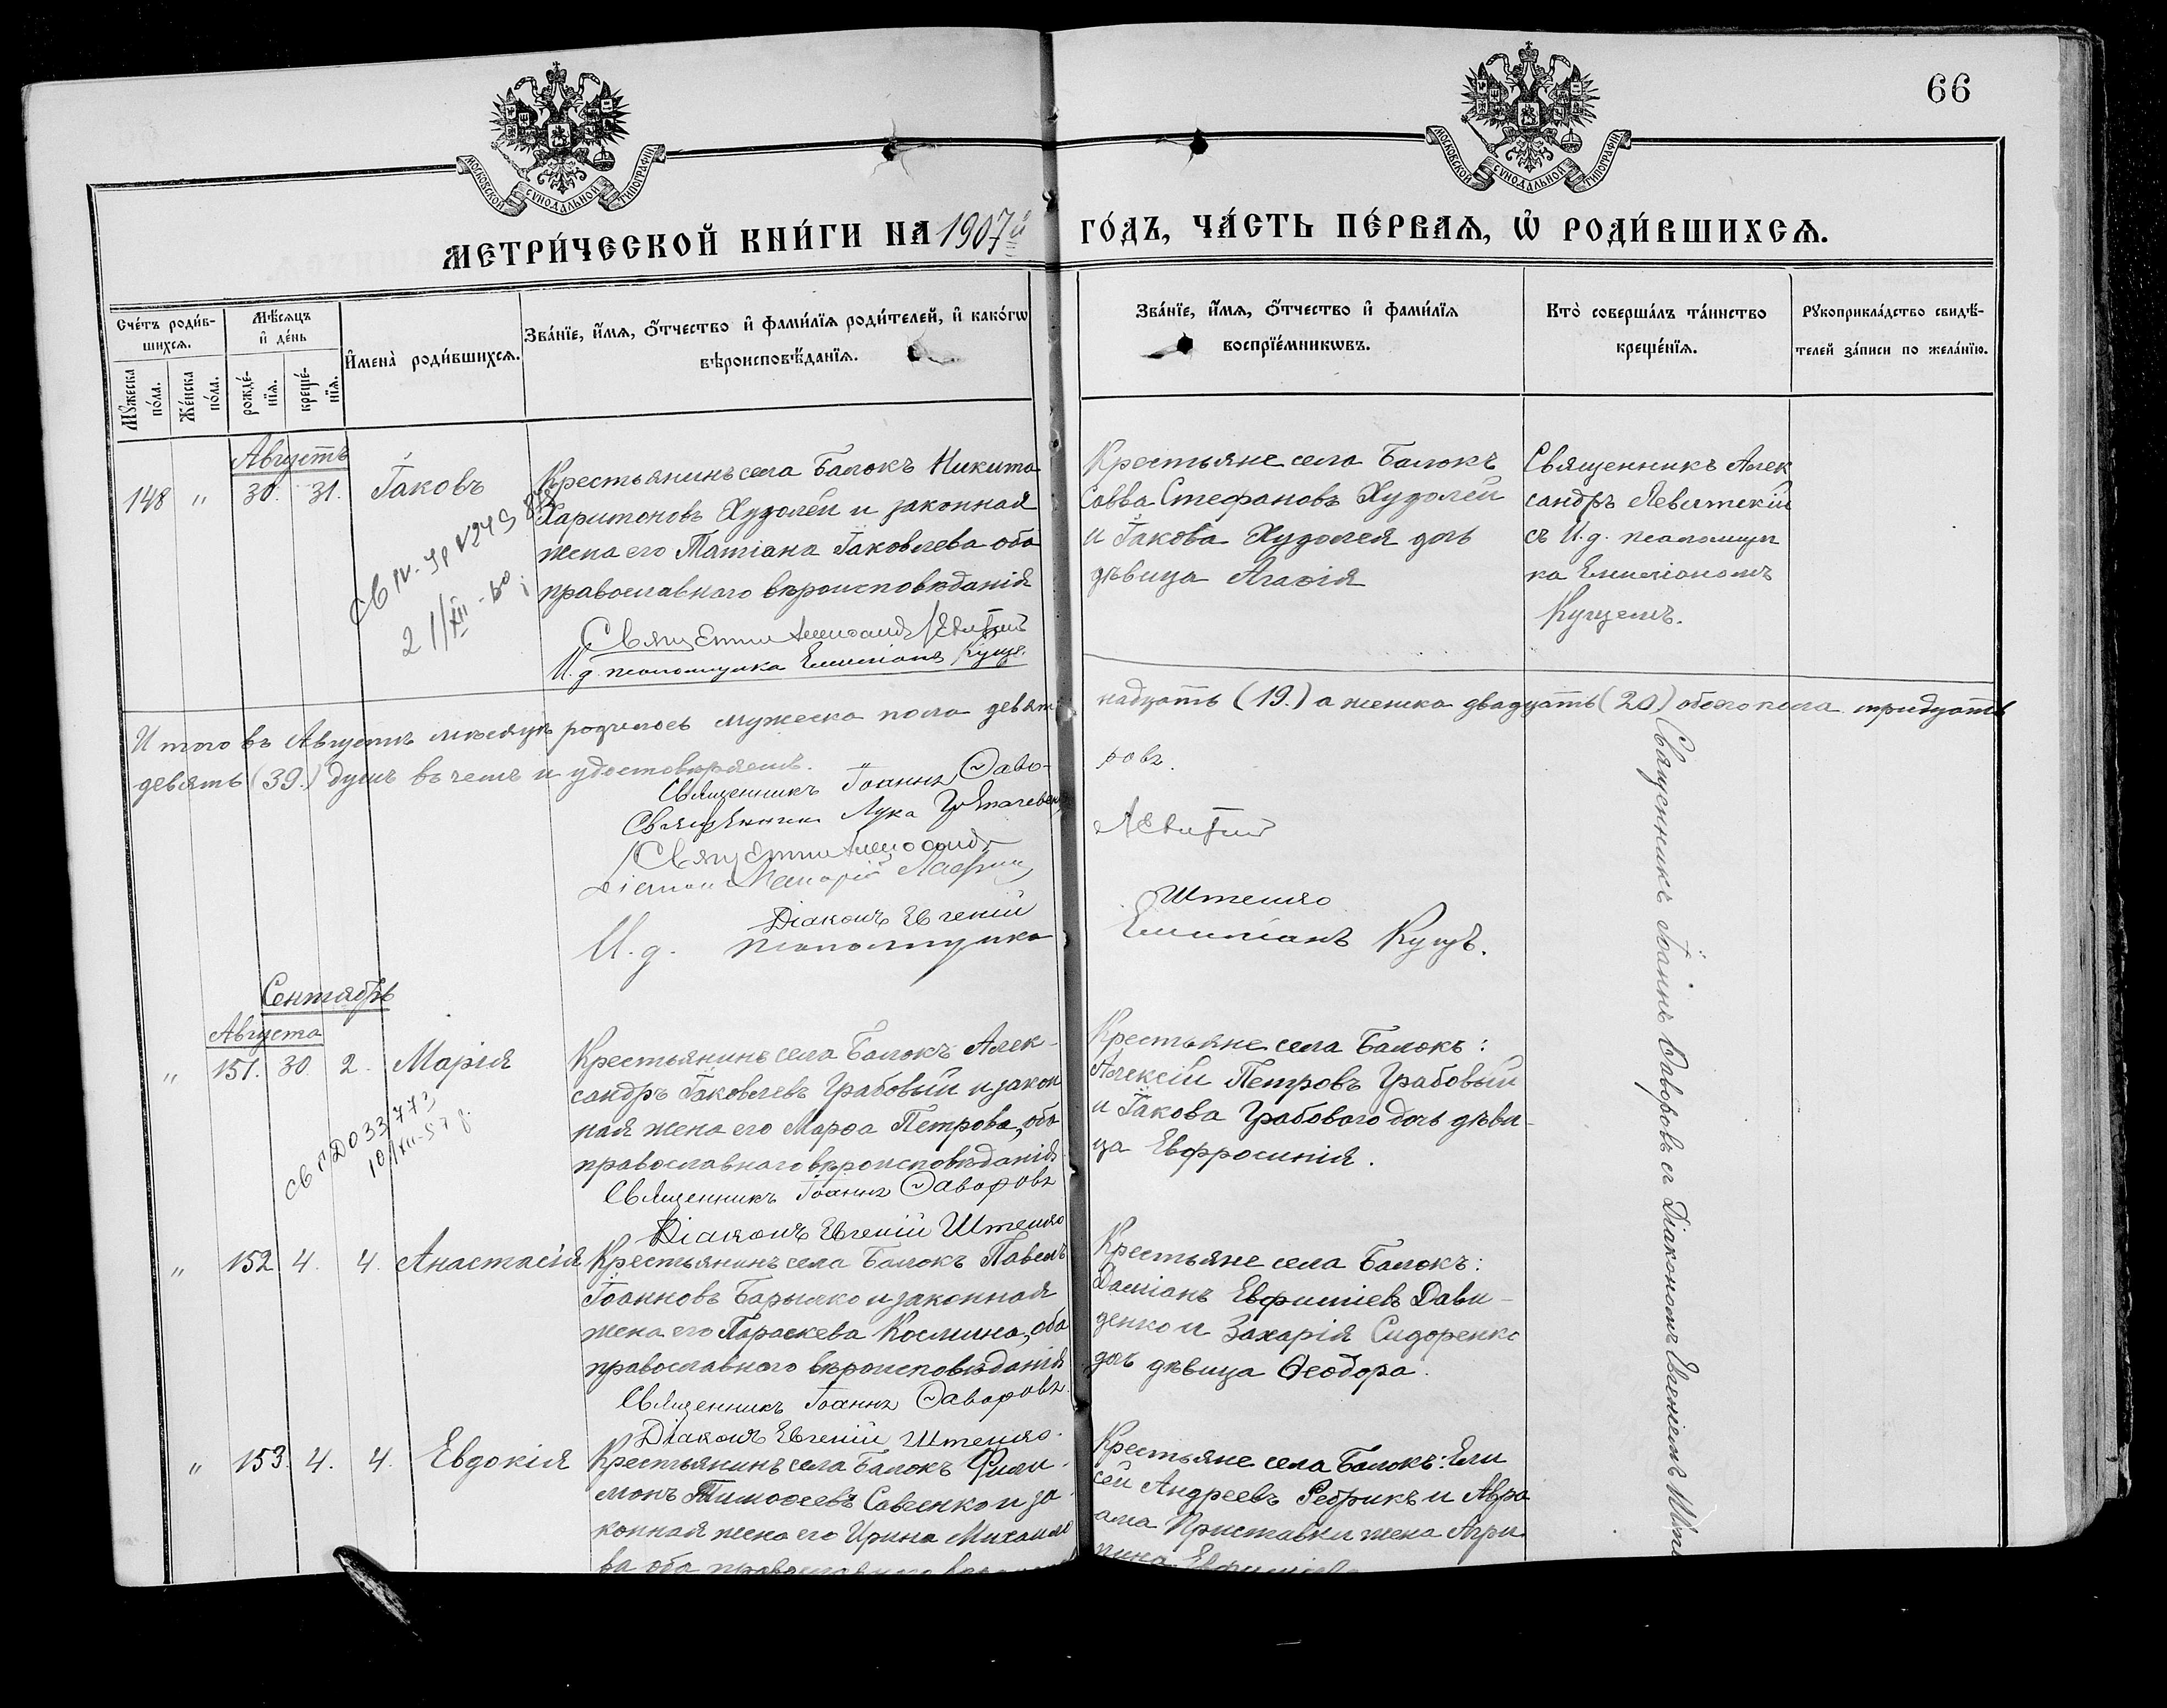 66
МОСКОВСКОЙ СѴНОДАЛЬНОЙ ТИПОГРАФІИ
МОСКОВСКОЙ СѴНОДАЛЬНОЙ ТИПОГРАФІИ
МЕТРИ́ЧЕСКОЙ КНИ́ГИ НА 1907й ГО́ДЪ, ЧА́СТЬ ПЕ́РВАѦ, Ѡ҆ РОДИ́ВШИХСѦ.
Сче́тъ роди́в-
шихсѧ.
Мꙋ́жеска по́ла.
Же́нска по́ла.
Мѣ́сѧцъ и҆ де́нь
рожде́-
нїѧ.
креще́-
нїѧ.
И҆мена̀ роди́вшихсѧ.
Зва́нїе, и҆́мѧ, ѻ҆́тчество и҆ фами́лїѧ роди́телей, и҆ како́гѡ
вѣроисповѣ́данїѧ.
Зва́нїе, и҆́мѧ, ѻ҆́тчество и҆ фами́лїѧ
воспрїе́мникѡвъ.
Кто̀ соверша́лъ та́инство
креще́нїѧ.
Рꙋкоприкла́дство свидѣ́-
телей за́писи по жела́нїю.
Августъ
148 " 30. 31. Іаковъ
Крестьянинъ села Балокъ Никита
Харитоновъ Худолей и законная
жена его Татіана Іаковлева оба
православнаго вѣроисповѣданія
И. д. псаломщика Емиліанъ Куце.
Крестьяне села Балокъ
Савва Стефановъ Худолей
и Іакова Худолея дочь
дѣвица Агаѳія
Священникъ Алек
сандръ Левитскій
съ И. д. псаломщи
ка Емиліаномъ
Куцемъ.
Итого въ Августѣ мѣсяцѣ родилось мужеска пола девят
надцать (19.) а женска двадцать (20) обоего пола тридцать
девять (39.) душъ въ чемъ и удостовѣряемъ.
Священникъ Іоаннъ Заво-
ровъ.
Священникъ Лука
Діаконъ Евгеній
Штепко
И. д. псаломщика
Емиліанъ Куцъ.
Сентябрь
Августа
" 151. 30. 2. Марія
Крестьянинъ села Балокъ Алек-
сандръ Іаковлевъ Грабовый и закон
ная жена его Марѳа Петрова, оба
православнаго вѣроисповѣданія
Священникъ Іоаннъ Заворовъ
Діаконъ Евгеній Штепко
Крестьяне села Балокъ:
Алексій Петровъ Грабовый
и Іакова Грабового дочь дѣви-
ца Евфросинія.
" 152 4. 4. Анастасія
Крестьянинъ села Балокъ Павелъ
Іоанновъ Барылко и законная
жена его Параскева Космина, оба
православнаго вѣроисповѣданія
Священникъ Іоаннъ Заворовъ.
Діаконъ Евгеній Штепко.
Крестьяне села Балокъ:
Даміанъ Евфиміевъ Дави-
денко и Захарія Сидоренко
дочь дѣвица Ѳеодора.
" 153. 4. 4. Евдокія
Крестьянинъ села Балокъ Фили-
монъ Тимоѳеевъ Савченко и за-
конная жена его Ирина Михаило
ва оба православнаго
Крестьяне села Балокъ: Ели
сей Андреевъ Ребрикъ и Авра
ама Приставки жена Агри
пина
Священникъ Іоаннъ Заворовъ съ Діакономъ Евгеніемъ